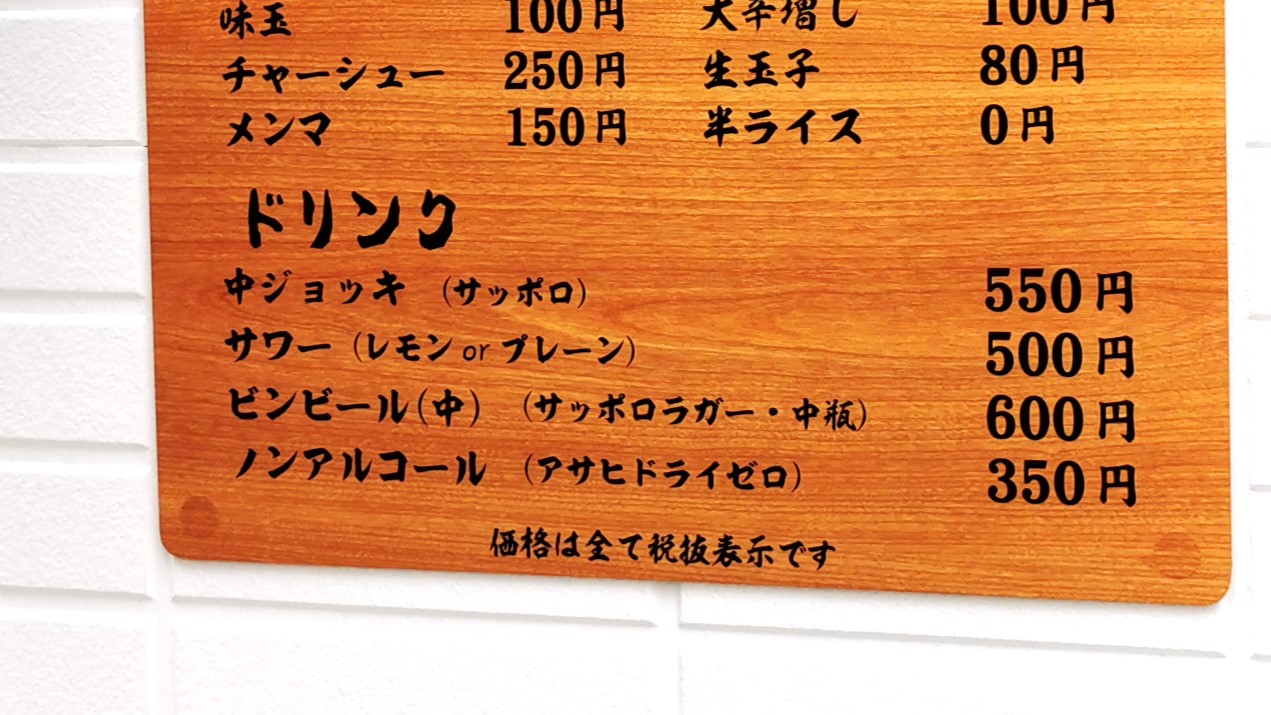 味玉 100円 大辛増し 100円
チャーシュー 250円 生玉子 80円
メンマ 150円 半ライス 0円
ドリンク
中ジョッキ （サッポロ） 550円
サワー（レモン or プレーン） 500円
ビンビール（中） （サッポロラガー・中瓶） 600円
ノンアルコール （アサヒドライゼロ） 350円
価格は全て税抜表示です